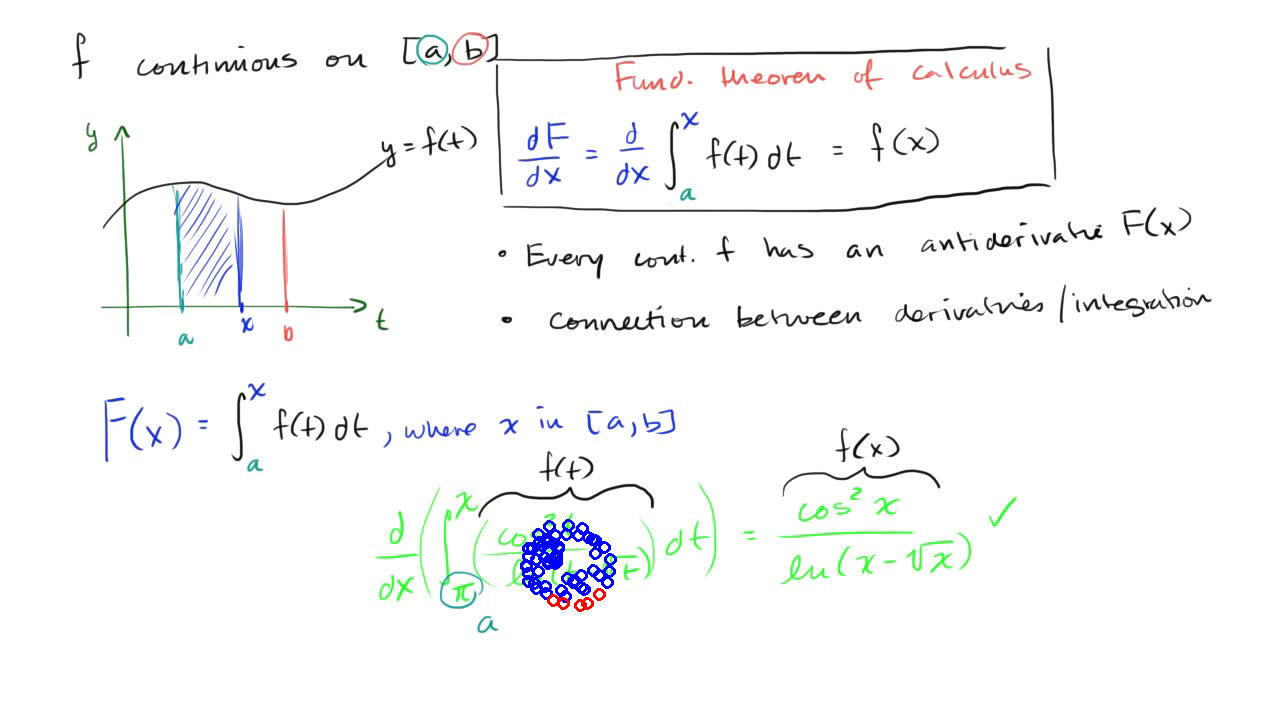 f continuous on [a,b]
Fund. theorem of calculus
dF/dx = d/dx ∫_a^x f(t) dt = f(x)
y
y = f(t)
a x b t
• Every cont. f has an antiderivative F(x)
• connection between derivatives/integration
F(x) = ∫_a^x f(t) dt, where x in [a,b]
f(t) f(x)
d/dx (∫_π^x ( ) dt) = cos² x / ln(x-√x) ✓
a